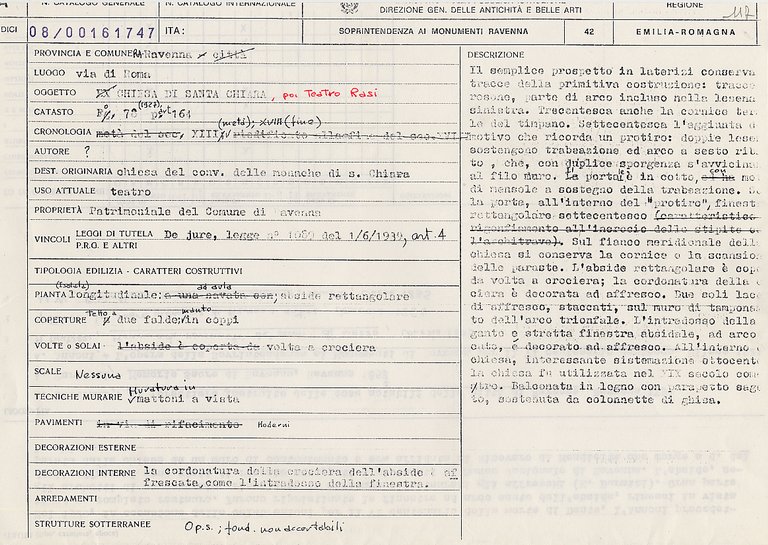 N. CATALOGO GENERALE
N. CATALOGO INTERNAZIONALE
DIREZIONE GEN. DELLE ANTICHITÀ E BELLE ARTI
REGIONE
117
DICI
08/00161747
ITA:
SOPRINTENDENZA AI MONUMENTI RAVENNA
42
EMILIA-ROMAGNA
PROVINCIA E COMUNE: RA-Ravenna - città
LUOGO via di Roma
OGGETTO CHIESA DI SANTA CHIARA, poi Teatro Rasi
CATASTO F° 78 (1927) 164
CRONOLOGIA metà del sec. XIII (metà); XVIII (fine) riedificato alla fine del sec. XVIII
AUTORE ?
DEST. ORIGINARIA chiesa del conv. delle monache di s. Chiara
USO ATTUALE teatro
PROPRIETÀ Patrimoniale del Comune di Ravenna
VINCOLI
LEGGI DI TUTELA De jure, legge n° 1089 del 1/6/1939, art. 4
P.R.G. E ALTRI
TIPOLOGIA EDILIZIA - CARATTERI COSTRUTTIVI
PIANTA (isolata) longitudinale: a una navata con; ad aula abside rettangolare
COPERTURE Tetto a due falde; manto in coppi
VOLTE o SOLAI - l'abside è coperta da volta a crociera
SCALE Nessuna
TECNICHE MURARIE Muratura in mattoni a vista
PAVIMENTI in via di rifacimento Moderni
DECORAZIONI ESTERNE
DECORAZIONI INTERNE la cordonatura della crociera dell'abside è af
frescata, come l'intradosso della finestra.
ARREDAMENTI
STRUTTURE SOTTERRANEE O.p.s.; fond. non accertabili
DESCRIZIONE
Il semplice prospetto in laterizi conserva
tracce della primitiva costruzione: tracce
rosone, parte di arco incluso nella lesena
sinistra. Trecentesca anche la cornice ter
le del timpano. Settecentesca l'aggiunta d
motivo che ricorda un protiro: doppie lese
sostengono trabeazione ed arco a sesto rib
to, che, con duplice sporgenza s'avvicina
al filo muro. Il portale è in cotto, con mo
di mensole a sostegno della trabeazione. S
la porta, all'interno del "protiro", finest
rettangolare settecentesco (caratteristico
rigonfiamento all'incrocio delle stipite c
l'architrave). Sul fianco meridionale dell
chiesa si conserva la cornice e la scansio
delle paraste. L'abside rettangolare è cop
da volta a crociera; la cordonatura della c
ciera è decorata ad affresco. Due soli lac
di affresco, staccati, sul muro di tampona
to dell'arco trionfale. L'intradosso della
gante e stretta finestra absidale, ad arco
cato, è decorato ad affresco. All'interno d
chiesa, interessante sistemazione ottocent
la chiesa fu utilizzata nel XIX secolo com
tro. Balconata in legno con parapetto sag
to, sostenuta da colonnette di ghisa.